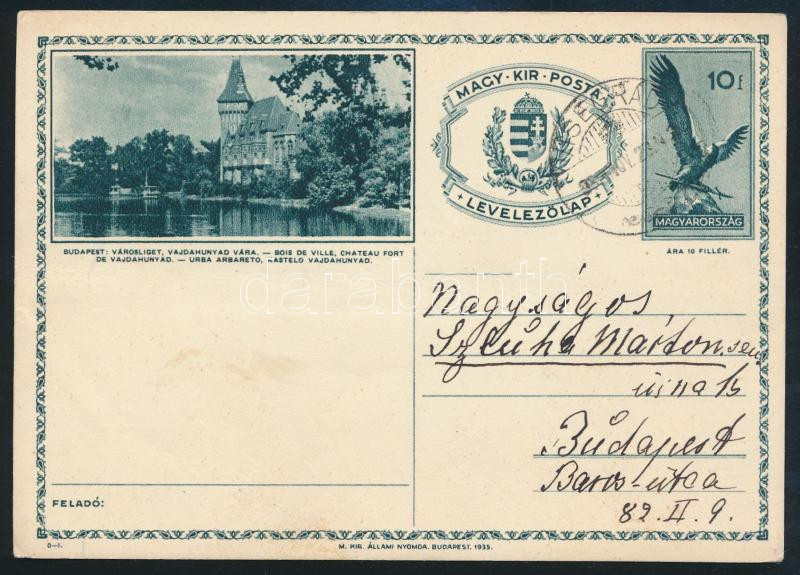 BUDAPEST: VÁROSLIGET, VAJDAHUNYAD VÁRA. — BOIS DE VILLE, CHATEAU FORT
DE VAJDAHUNYAD. — URBA ARBARETO, KASTELO VAJDAHUNYAD.
MAGY·KIR·POSTA
LEVELEZŐLAP
10 f
MAGYARORSZÁG
ÁRA 10 FILLÉR.
darabanth
Nagyságos
Szluha Márton sen
úrnak
Budapest
Baros-utca
82. II. 9.
FELADÓ:
D—I.
M. KIR. ÁLLAMI NYOMDA. BUDAPEST. 1935.